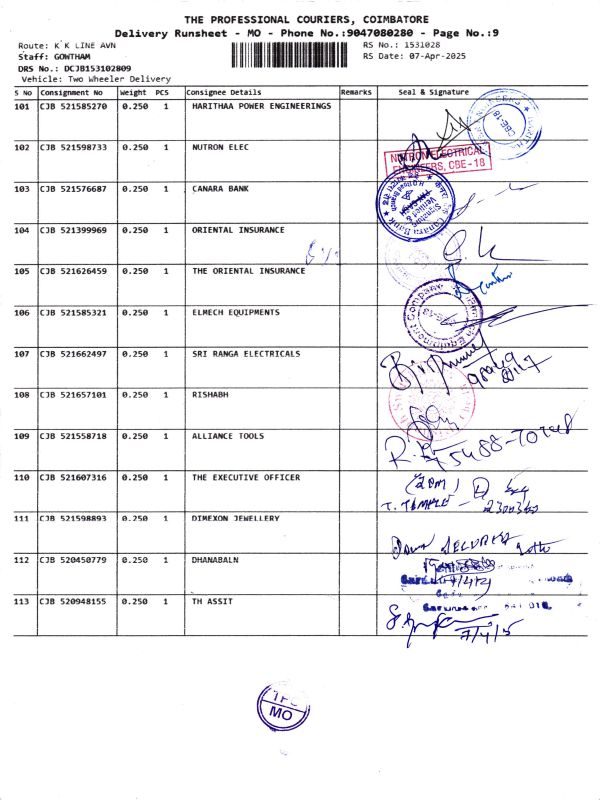 THE PROFESSIONAL COURIERS, COIMBATORE
Delivery Runsheet - MO - Phone No.:9047080280 - Page No.:9
Route: K K LINE AVN
RS No.: 1531028
Staff: GOWTHAM
RS Date: 07-Apr-2025
DRS No.: DCJB153102809
Vehicle: Two Wheeler Delivery
S No Consignment No Weight PCS Consignee Details Remarks Seal & Signature
101 CJB 521585270 0.250 1 HARITHAA POWER ENGINEERINGS
CBE-18
102 CJB 521598733 0.250 1 NUTRON ELEC
NUTRON ELECTRICAL
ENGINEERS, CBE-18
103 CJB 521576687 0.250 1 CANARA BANK
Canara Bank
104 CJB 521399969 0.250 1 ORIENTAL INSURANCE
105 CJB 521626459 0.250 1 THE ORIENTAL INSURANCE
106 CJB 521585321 0.250 1 ELMECH EQUIPMENTS
107 CJB 521662497 0.250 1 SRI RANGA ELECTRICALS
108 CJB 521657101 0.250 1 RISHABH
109 CJB 521558718 0.250 1 ALLIANCE TOOLS
110 CJB 521607316 0.250 1 THE EXECUTIVE OFFICER
T. TEMPLE -
111 CJB 521598893 0.250 1 DIMEXON JEWELLERY
112 CJB 520450779 0.250 1 DHANABALN
113 CJB 520948155 0.250 1 TH ASSIT
7/4/5
TPC
MO